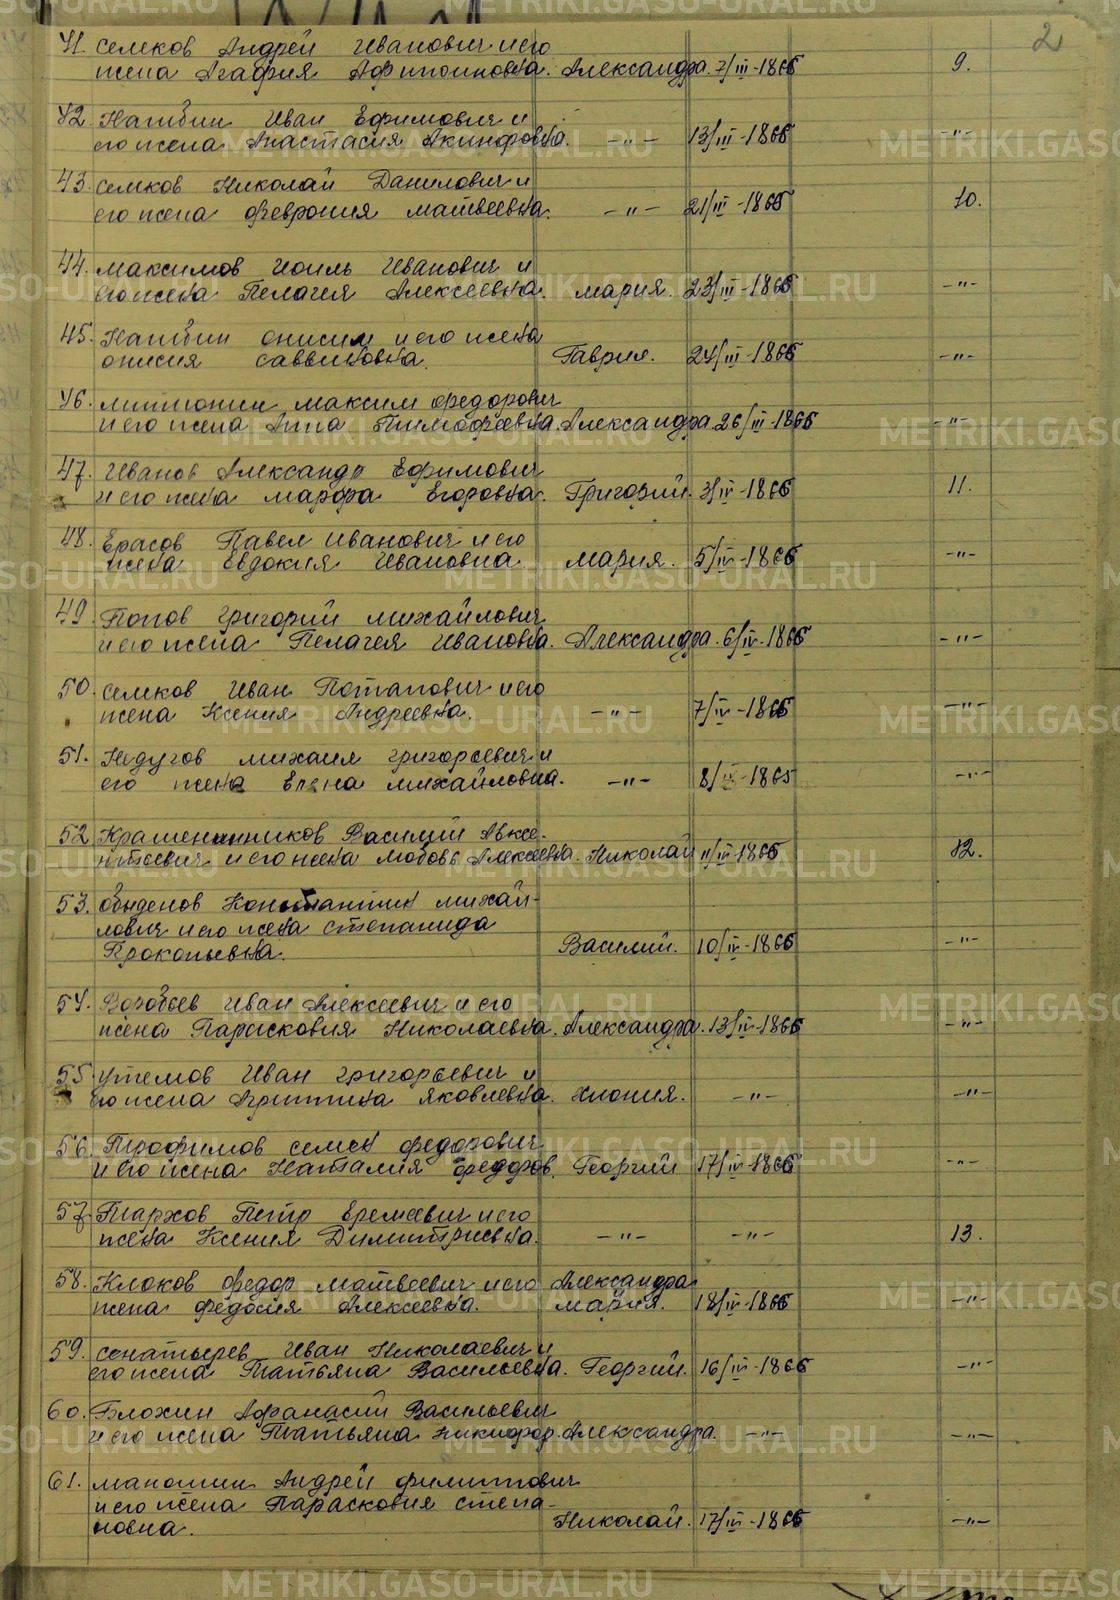 2
41. Семков Андрей Иванович и его
жена Агафия Афиногеновна. Александра. 7/III-1866 9.
42. Нагибин Иван Ефимович и
его жена Анастасия Акинфовна. -"- 13/III-1866 -"-
43. Семков Николай Данилович и
его жена Феврония Матвеевна. -"- 21/III-1866 10.
44. Максимов Иоиль Иванович и
его жена Пелагея Алексеевна. Мария. 23/III-1866 -"-
45. Нагибин Онисим и его жена
Онисия Саввиновна. Гаврил. 24/III-1866 -"-
46. Максим Федорович
и его жена Анна Тимофеевна. Александра. 26/III-1866 -"-
47. Иванов Александр Ефимович
и его жена Марфа Егоровна. Григорий. 3/IV-1866 11.
48. Ерасов Павел Иванович и его
жена Евдокия Ивановна. Мария. 5/IV-1866 -"-
49. Попов Григорий Михайлович
и его жена Пелагея Ивановна. Александра. 6/IV-1866 -"-
50. Семков Иван Потапович и его
жена Ксения Андреевна. -"- 7/IV-1866 -"-
51. Недугов Михаил Григорьевич и
его жена Елена Михайловна. -"- 8/IV-1865 -"-
52. Крашенинников Василий Авксе-
нтьевич и его жена Любовь Алексеевна. Николай 11/IV-1866 12.
53. Обыденов Константин Михай-
лович и его жена Степанида
Прокопьевна. Василий. 10/IV-1866 -"-
54. Воробьев Иван Алексеевич и его
жена Парасковия Николаевна. Александра. 13/IV-1866 -"-
55. Утемов Иван Григорьевич и
его жена Агриппина Яковлевна. Хиония. -"- -"-
56. Трофимов Семен Федорович
и его жена Наталия Федоров. Георгий 17/IV-1866 -"-
57. Тархов Петр Еремеевич и его
жена Ксения Димитриевна. -"- -"- 13.
58. Клоков Федор Матвеевич и его Александра
жена Федосия Алексеевна. Мария. 18/IV-1866 -"-
59. Сонатырев Иван Николаевич и
его жена Татьяна Васильевна. Георгий. 16/IV-1866 -"-
60. Блохин Афанасий Васильевич
и его жена Татьяна Никифор. Александра. -"- -"-
61. Маношин Андрей Филиппович
и его жена Парасковия Степа-
новна. Николай. 17/IV-1866 -"-
METRIKI.GASO-URAL.RU